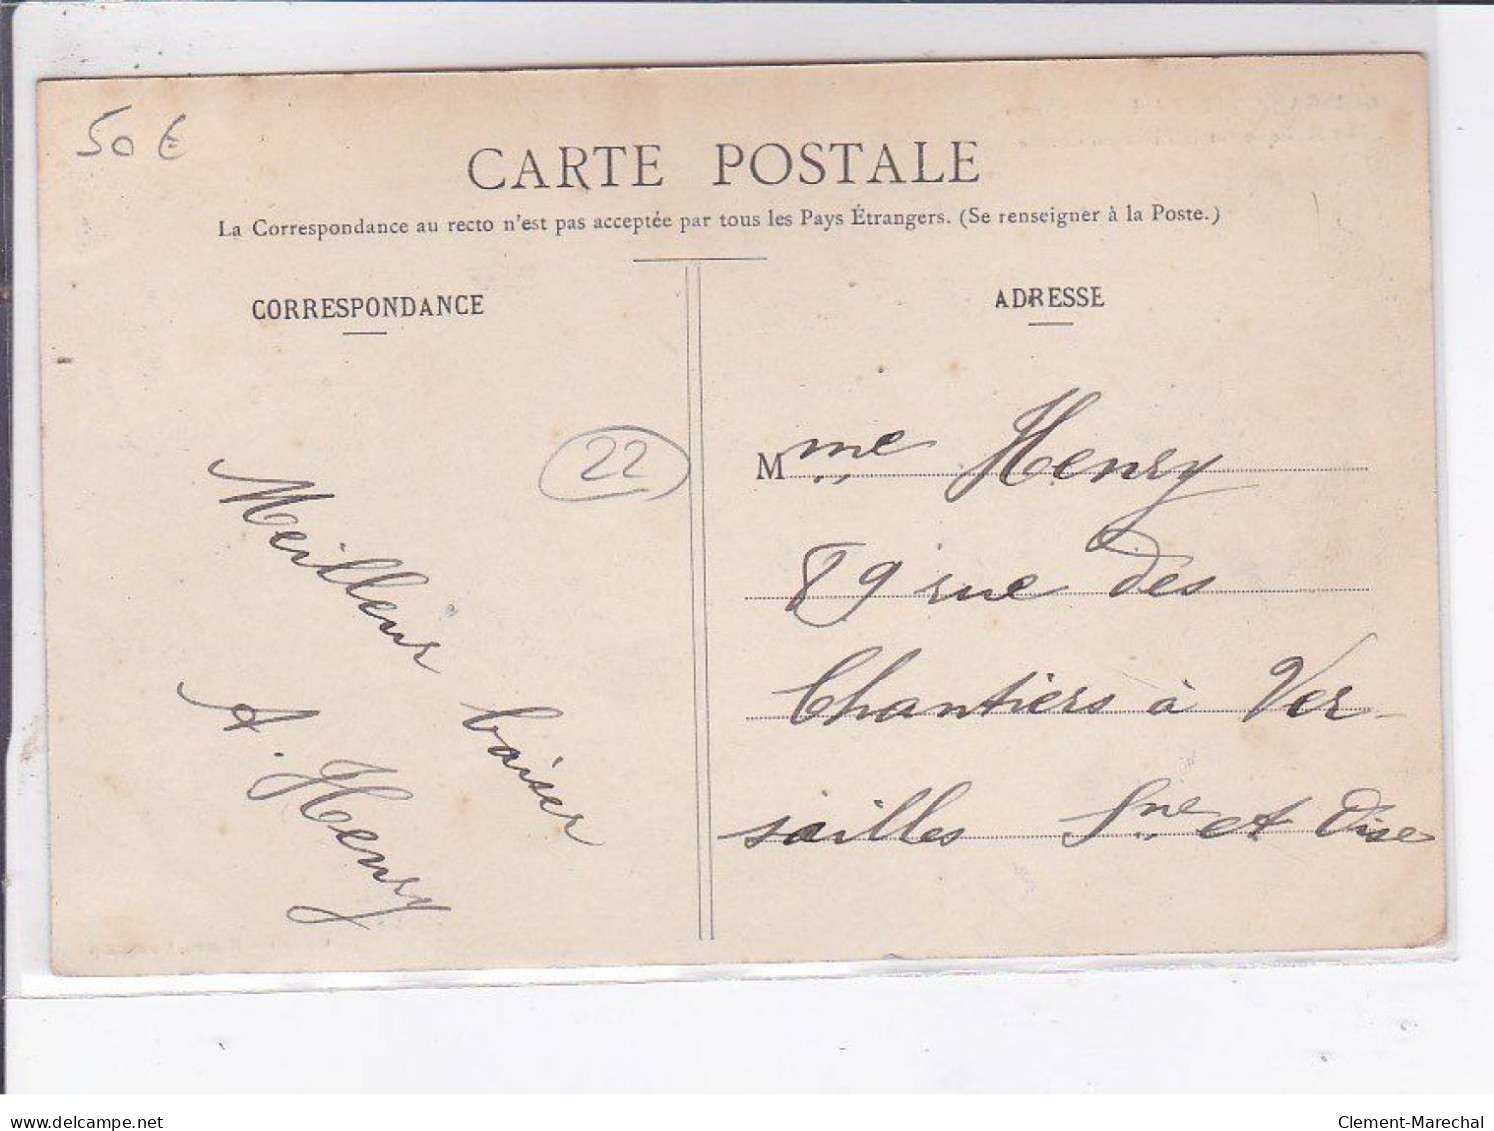 50 €
CARTE POSTALE
La Correspondance au recto n'est pas acceptée par tous les Pays Étrangers. (Se renseigner à la Poste.)
CORRESPONDANCE
ADRESSE
22
Meilleur baiser
A. Henry
Mme Henry
89 rue des
Chantiers à Ver-
sailles Sne et Oise
delcampe.net
Clement-Marechal